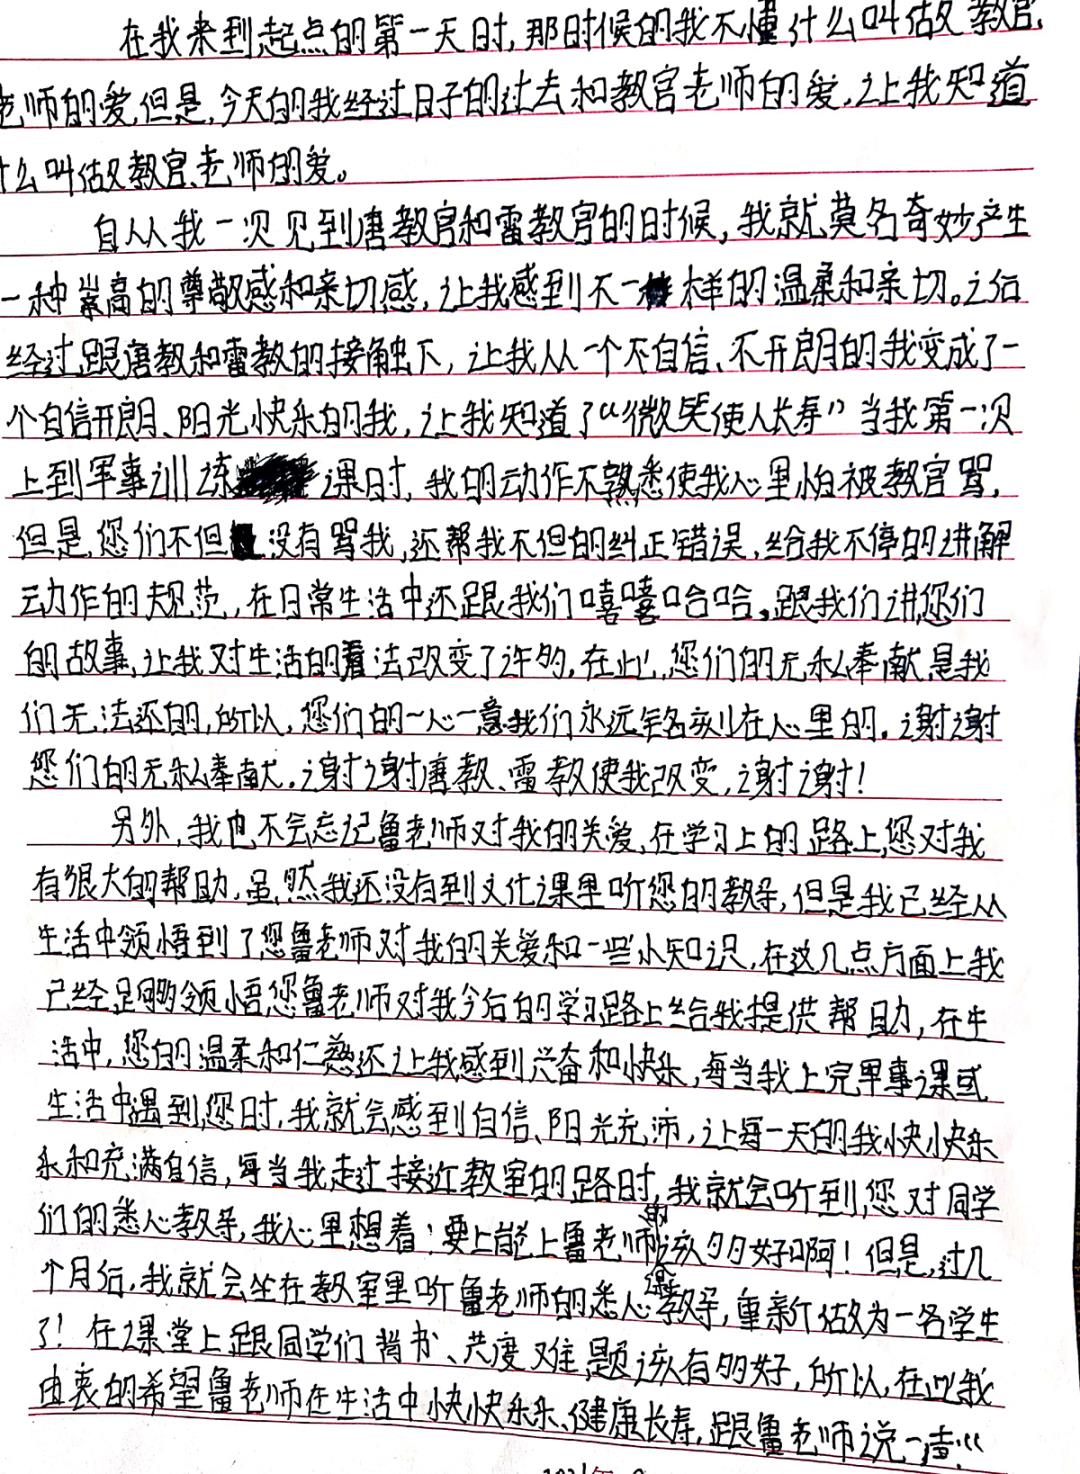 在我来到起点的第一天时,那时候的我不懂什么叫做教官
老师的爱,但是,今天的我经过日子的过去和教官老师的爱,让我知道
什么叫做教官、老师的爱。
自从我一次见到唐教官和雷教官的时候,我就莫名奇妙产生
一种崇高的尊敬感和亲切感,让我感到不一样的温柔和亲切。之后
经过跟唐教和雷教的接触下,让我从一个不自信、不开朗的我变成了一
个自信开朗、阳光快乐的我,让我知道了“微笑使人长寿”当我第一次
上到军事训练课时,我的动作不熟悉使我心里怕被教官骂,
但是,您们不但没有骂我,还帮我不但的纠正错误,给我不停的讲解
动作的规范,在日常生活中还跟我们嘻嘻哈哈,跟我们讲您们
的故事,让我对生活的看法改变了许多,在此,您们的无私奉献是我
们无法还的,所以,您们的一心一意我们永远铭刻在心里的。谢谢
您们的无私奉献。谢谢唐教、雷教使我改变,谢谢!
另外,我也不会忘记鲁老师对我的关爱,在学习上的路上,您对我
有很大的帮助,虽然我还没有到文化课里听您的教导,但是我已经从
生活中领悟到了您鲁老师对我的关爱和一些小知识,在这几点方面上我
已经足够领悟您鲁老师对我今后的学习路上给我提供帮助,在生
活中,您的温柔和仁慈还让我感到兴奋和快乐,每当我上完军事课或
生活中遇到您时,我就会感到自信、阳光充沛,让每一天的我快快乐
乐和充满自信,每当我走过接近教室的路时,我就会听到您对同学
们的悉心教导,我心里想着:要上能上鲁老师的课该多好啊!但是,过几
个月后,我就会坐在教室里听鲁老师的悉心教导,重新做为一名学生
了!在课堂上跟同学们背书、共度难题该有多好,所以,在此我
由衷的希望鲁老师在生活中快快乐乐、健康长寿,跟鲁老师说一声:“